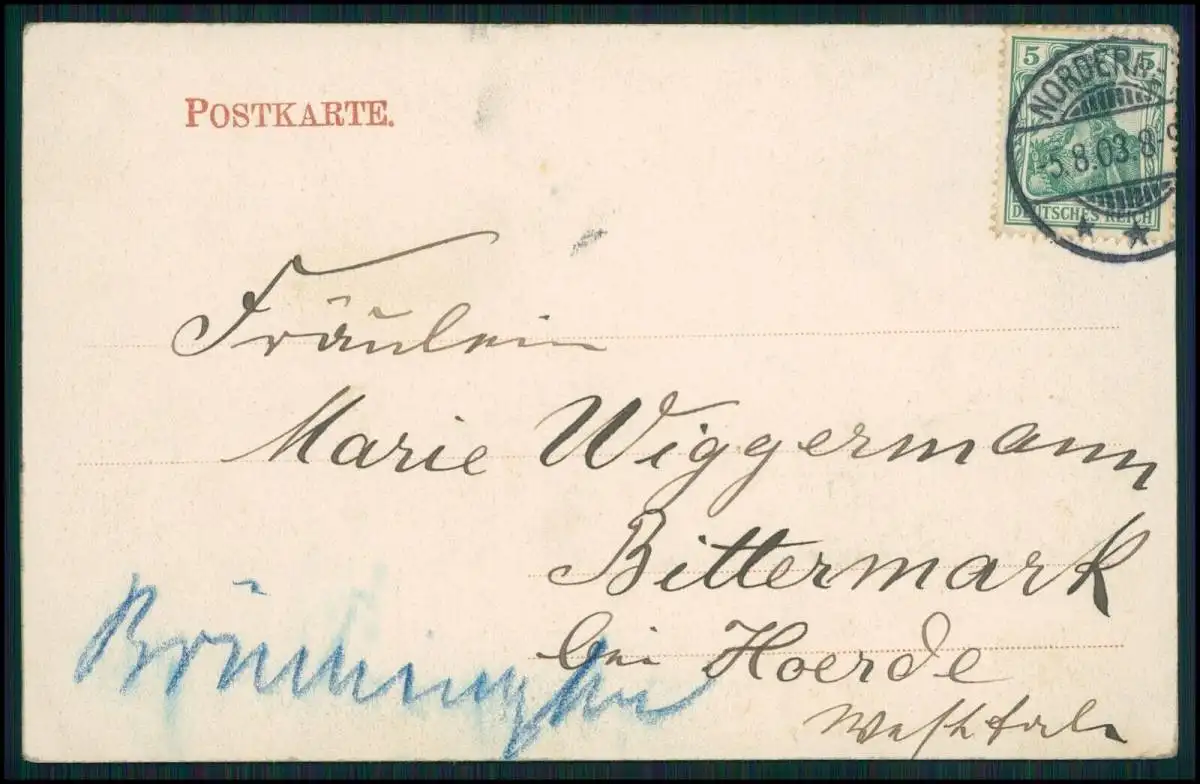 POSTKARTE.
5 5
NORDERN
-5.8.03.8-9
DEUTSCHES REICH
Fräulein
Marie Wiggermann
Bittermark
bei Hoerde
Westfal.
Brünninghs